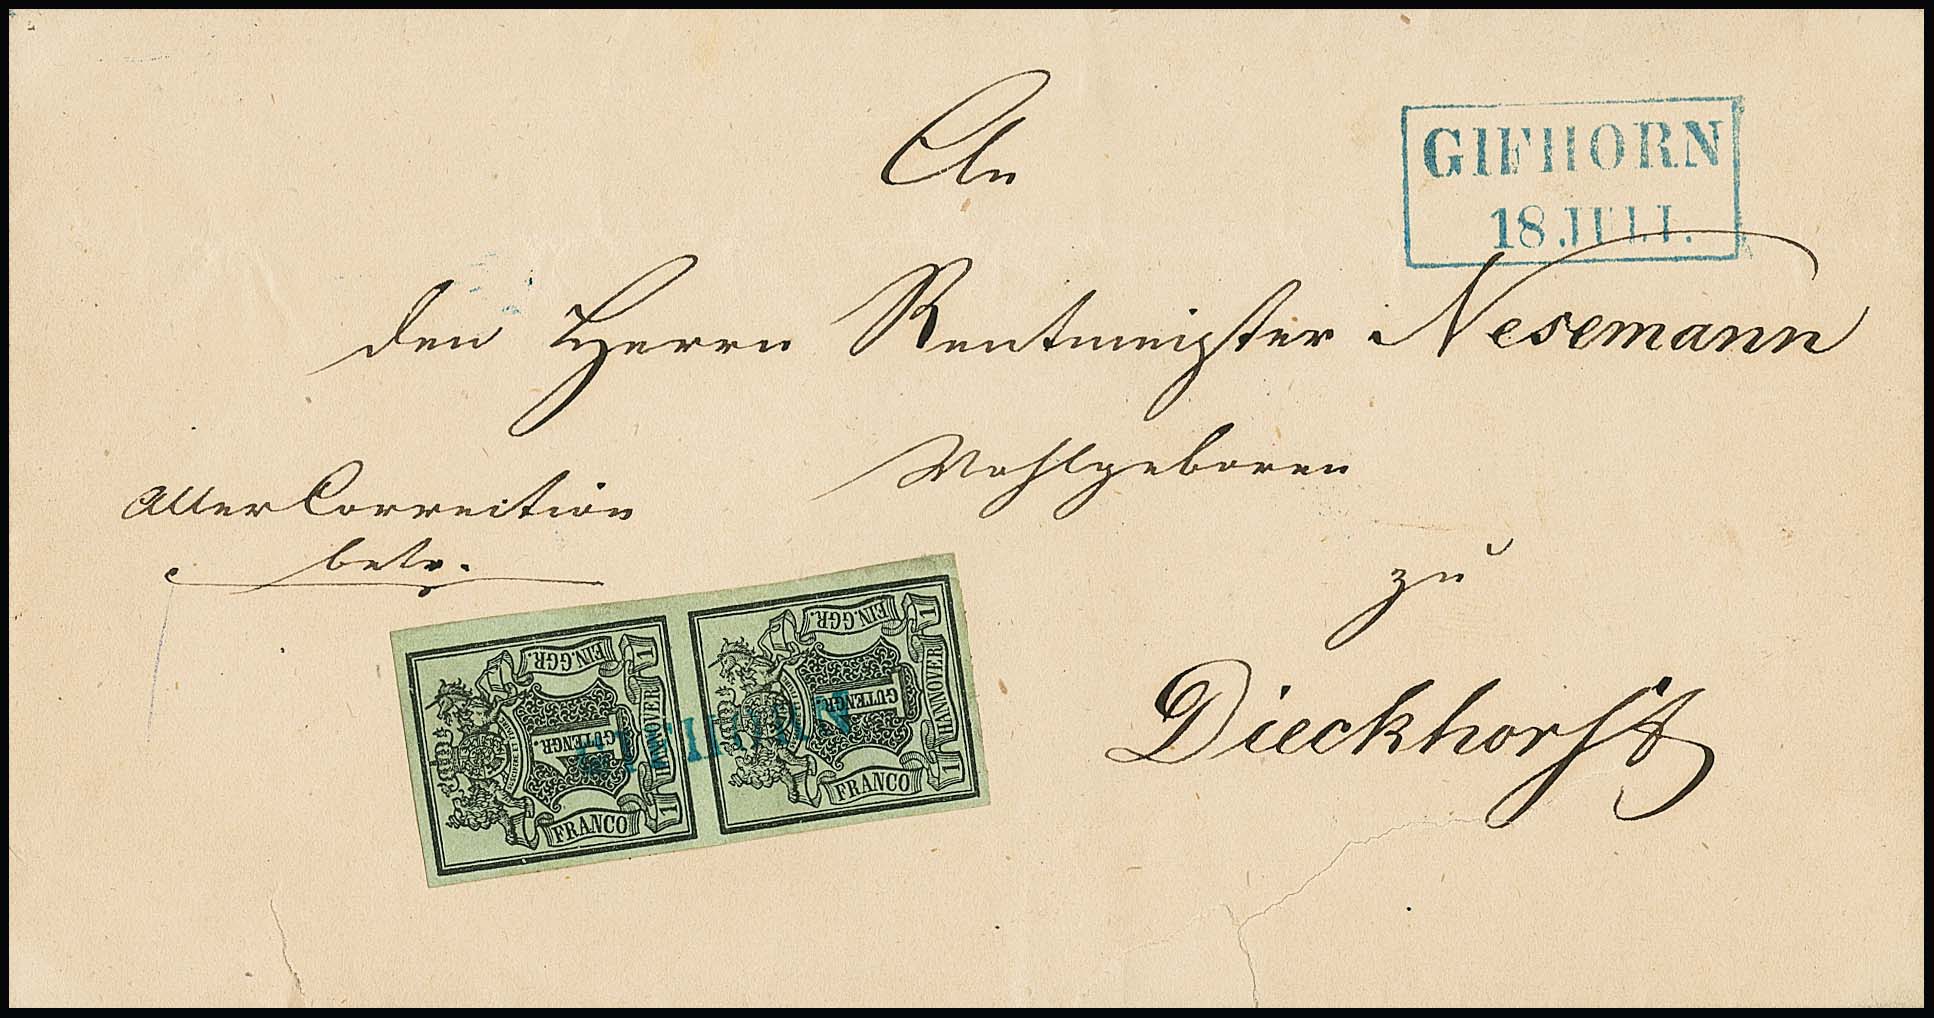 An
GIFHORN
18 JULI.
den Herrn Rentmeister Nesemann
Wohlgeboren
Aller Correction
betr.
zu
Dieckhorst
EIN.GGR.
1
1
GUTENGR.
HANNOVER
FRANCO
1
EIN.GGR.
1
1
GUTENGR.
HANNOVER
FRANCO
1
GIFHORN